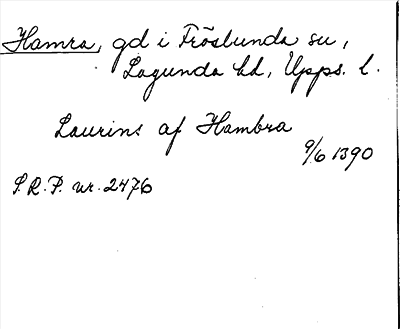 Hamra, gd i Fröslunda su,
Lagunda hd, Upps. l.
Laurins af Hambra
9/6 1390
S.R.P. nr. 2476